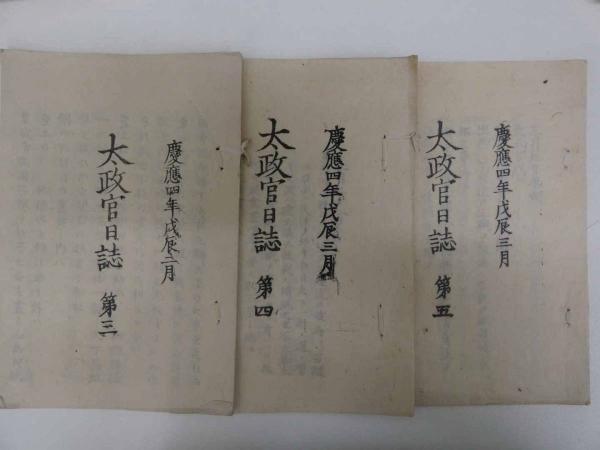 慶應四年戊辰三月
太政官日誌 第五
慶應四年戊辰三月
太政官日誌 第四
慶應四年戊辰二月
太政官日誌 第三